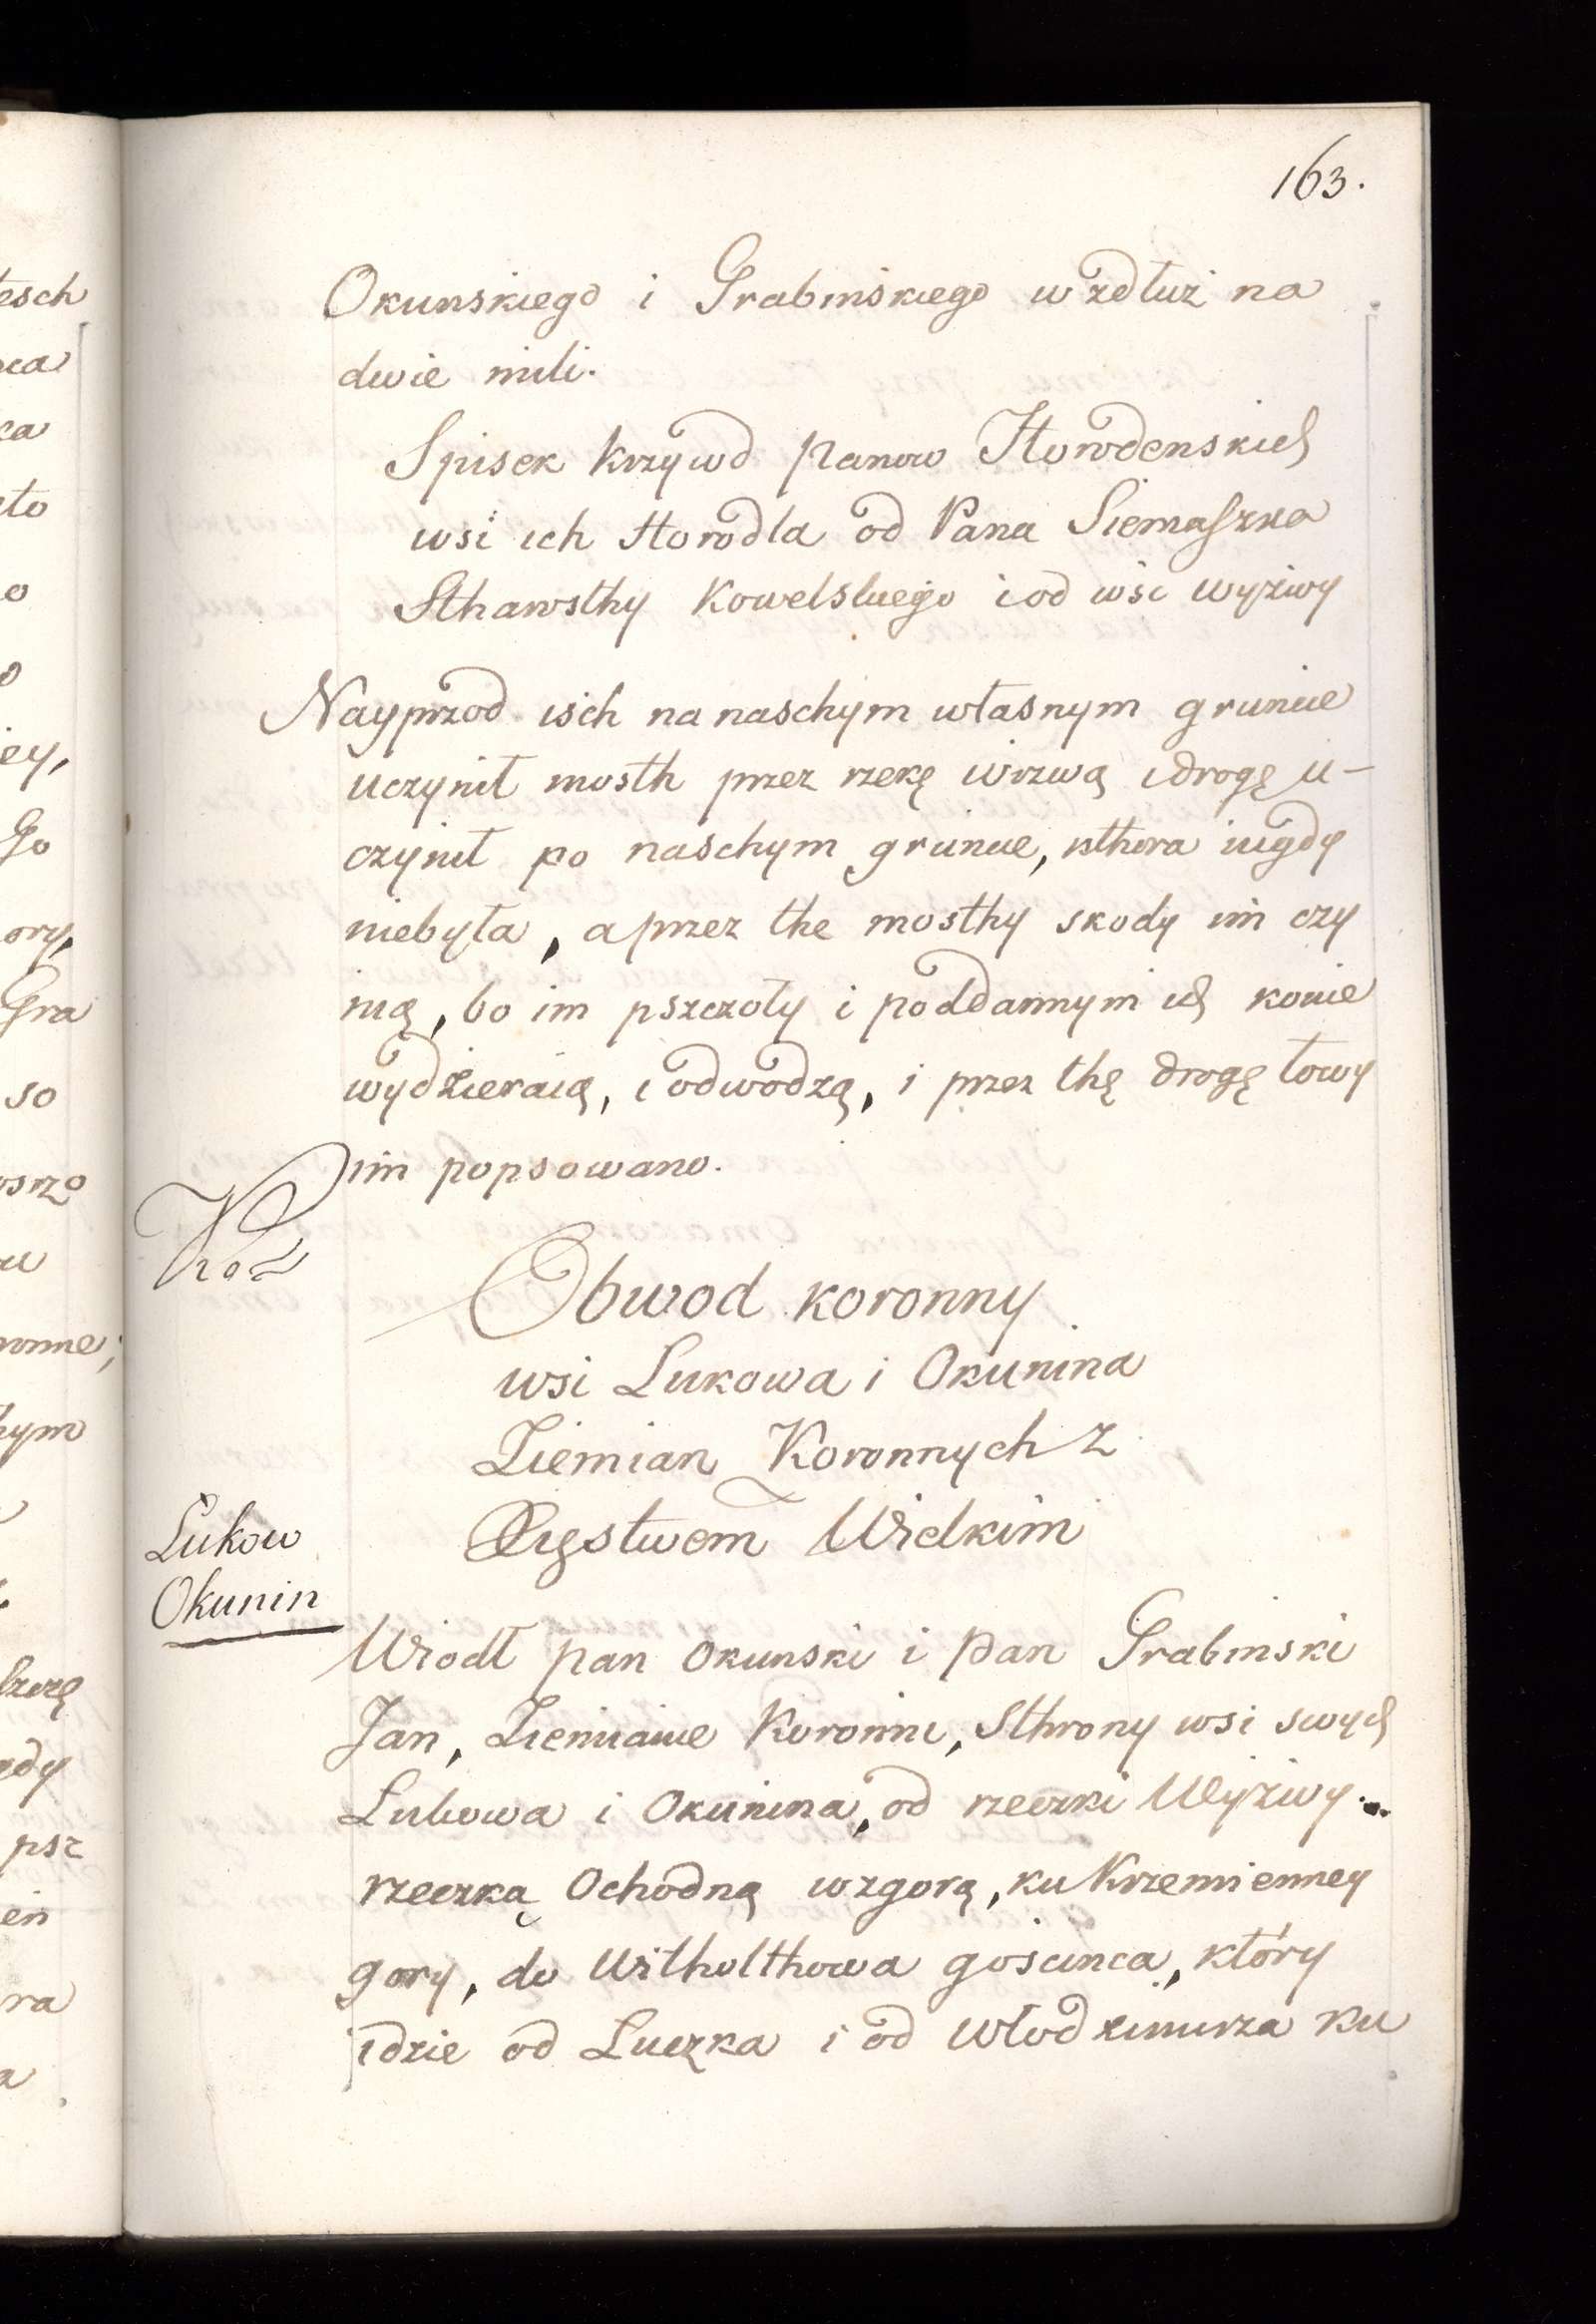 163.
Okunskiego i Grabinskiego wzdłuż na
dwie mili.
Spisek krzywd Panow Horodenskich
wsi ich Horodla od Pana Siemaszka
Stharosthy Kowelskiego i od wsi Wyziwy
Nayprzod isch na naschym własnym gruncie
uczynił mosth przez rzekę wizwą i drogę u-
czynił po naschym gruncie, kthora nigdy
niebyła, a przez the mosthy skody im czy
nią, bo im pszczoły i poddannym ich konie
wydzieraią, i odwodzą, i przez thę drogę łowy
im popsowano.
Obwod koronny
wsi Lukowa i Okunina
Ziemian Koronnych z
Xięstwem Wielkim
Lukow
Okunin
Wiodł pan Okunski i pan Grabinski
Jan, Ziemianie Koronni, Sthrony wsi swych
Lukowa i Okunina, od rzeczki Wyżiwy
rzeczką Ochodną wzgorą, ku Krzemienney
gory, do Witholthowa gościnca, który
idzie od Luczka i od Włodzimirza ku